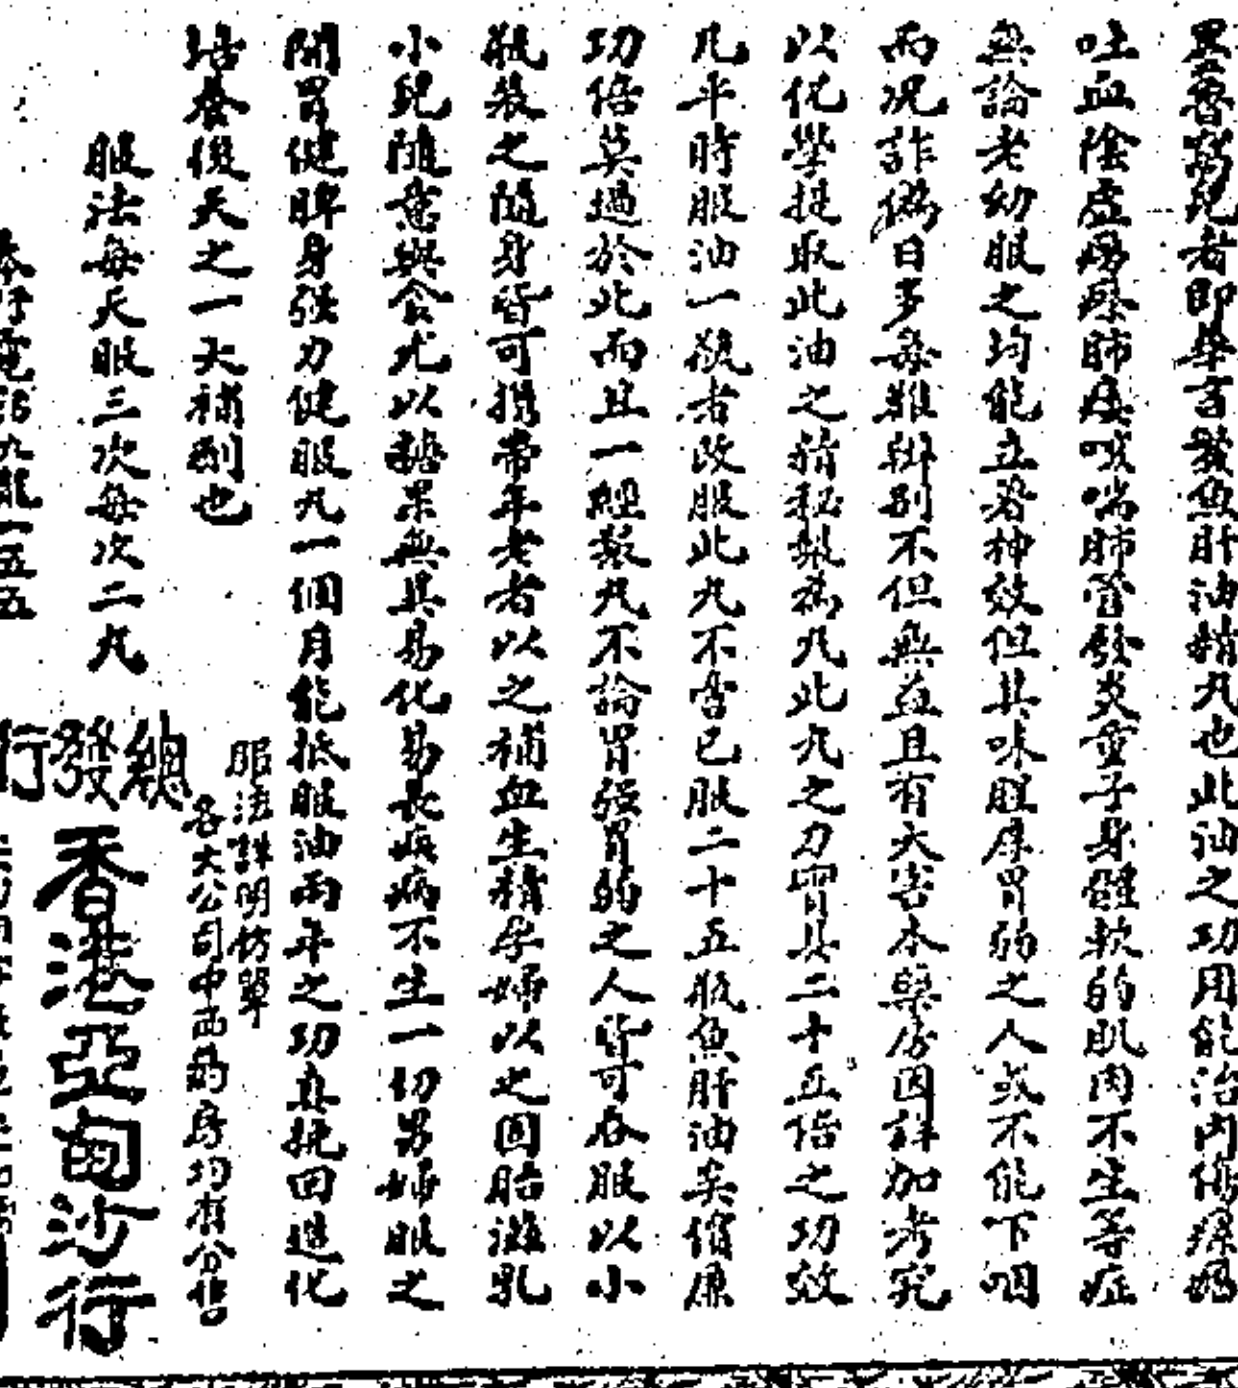 墨魯窩兒者即華言鰵魚肝油精丸也此油之功用能治內傷癆傷
吐血陰虛癆瘵肺痿咳喘肺管發炎童子身體軟弱肌肉不生等症
無論老幼服之均能立著神效但其味腥厚胃弱之人或不能下咽
而況詐偽日多每難辨別不但無益且有大害本藥房因詳加考究
以化學提取此油之精秘製為丸此丸之力實具二十五倍之功效
凡平時服油一瓶者改服此丸不啻已服二十五瓶魚肝油矣價廉
功倍莫過於此而且一經製丸不論胃強胃弱之人皆可吞服以小
瓶裝之隨身皆可攜帶年老者以之補血生精孕婦以之固胎滋乳
小兒隨意與食尤以糖果無異易化易長疾病不生一切男婦服之
開胃健脾身強力健服丸一個月能抵服油兩年之功真挽回造化
培養後天之一大補劑也
服法每天服三次每次二丸
服法詳明仿單
各大公司中西葯房均有分售
總發行
香港亞甸沙行
本行電話九龍一五五